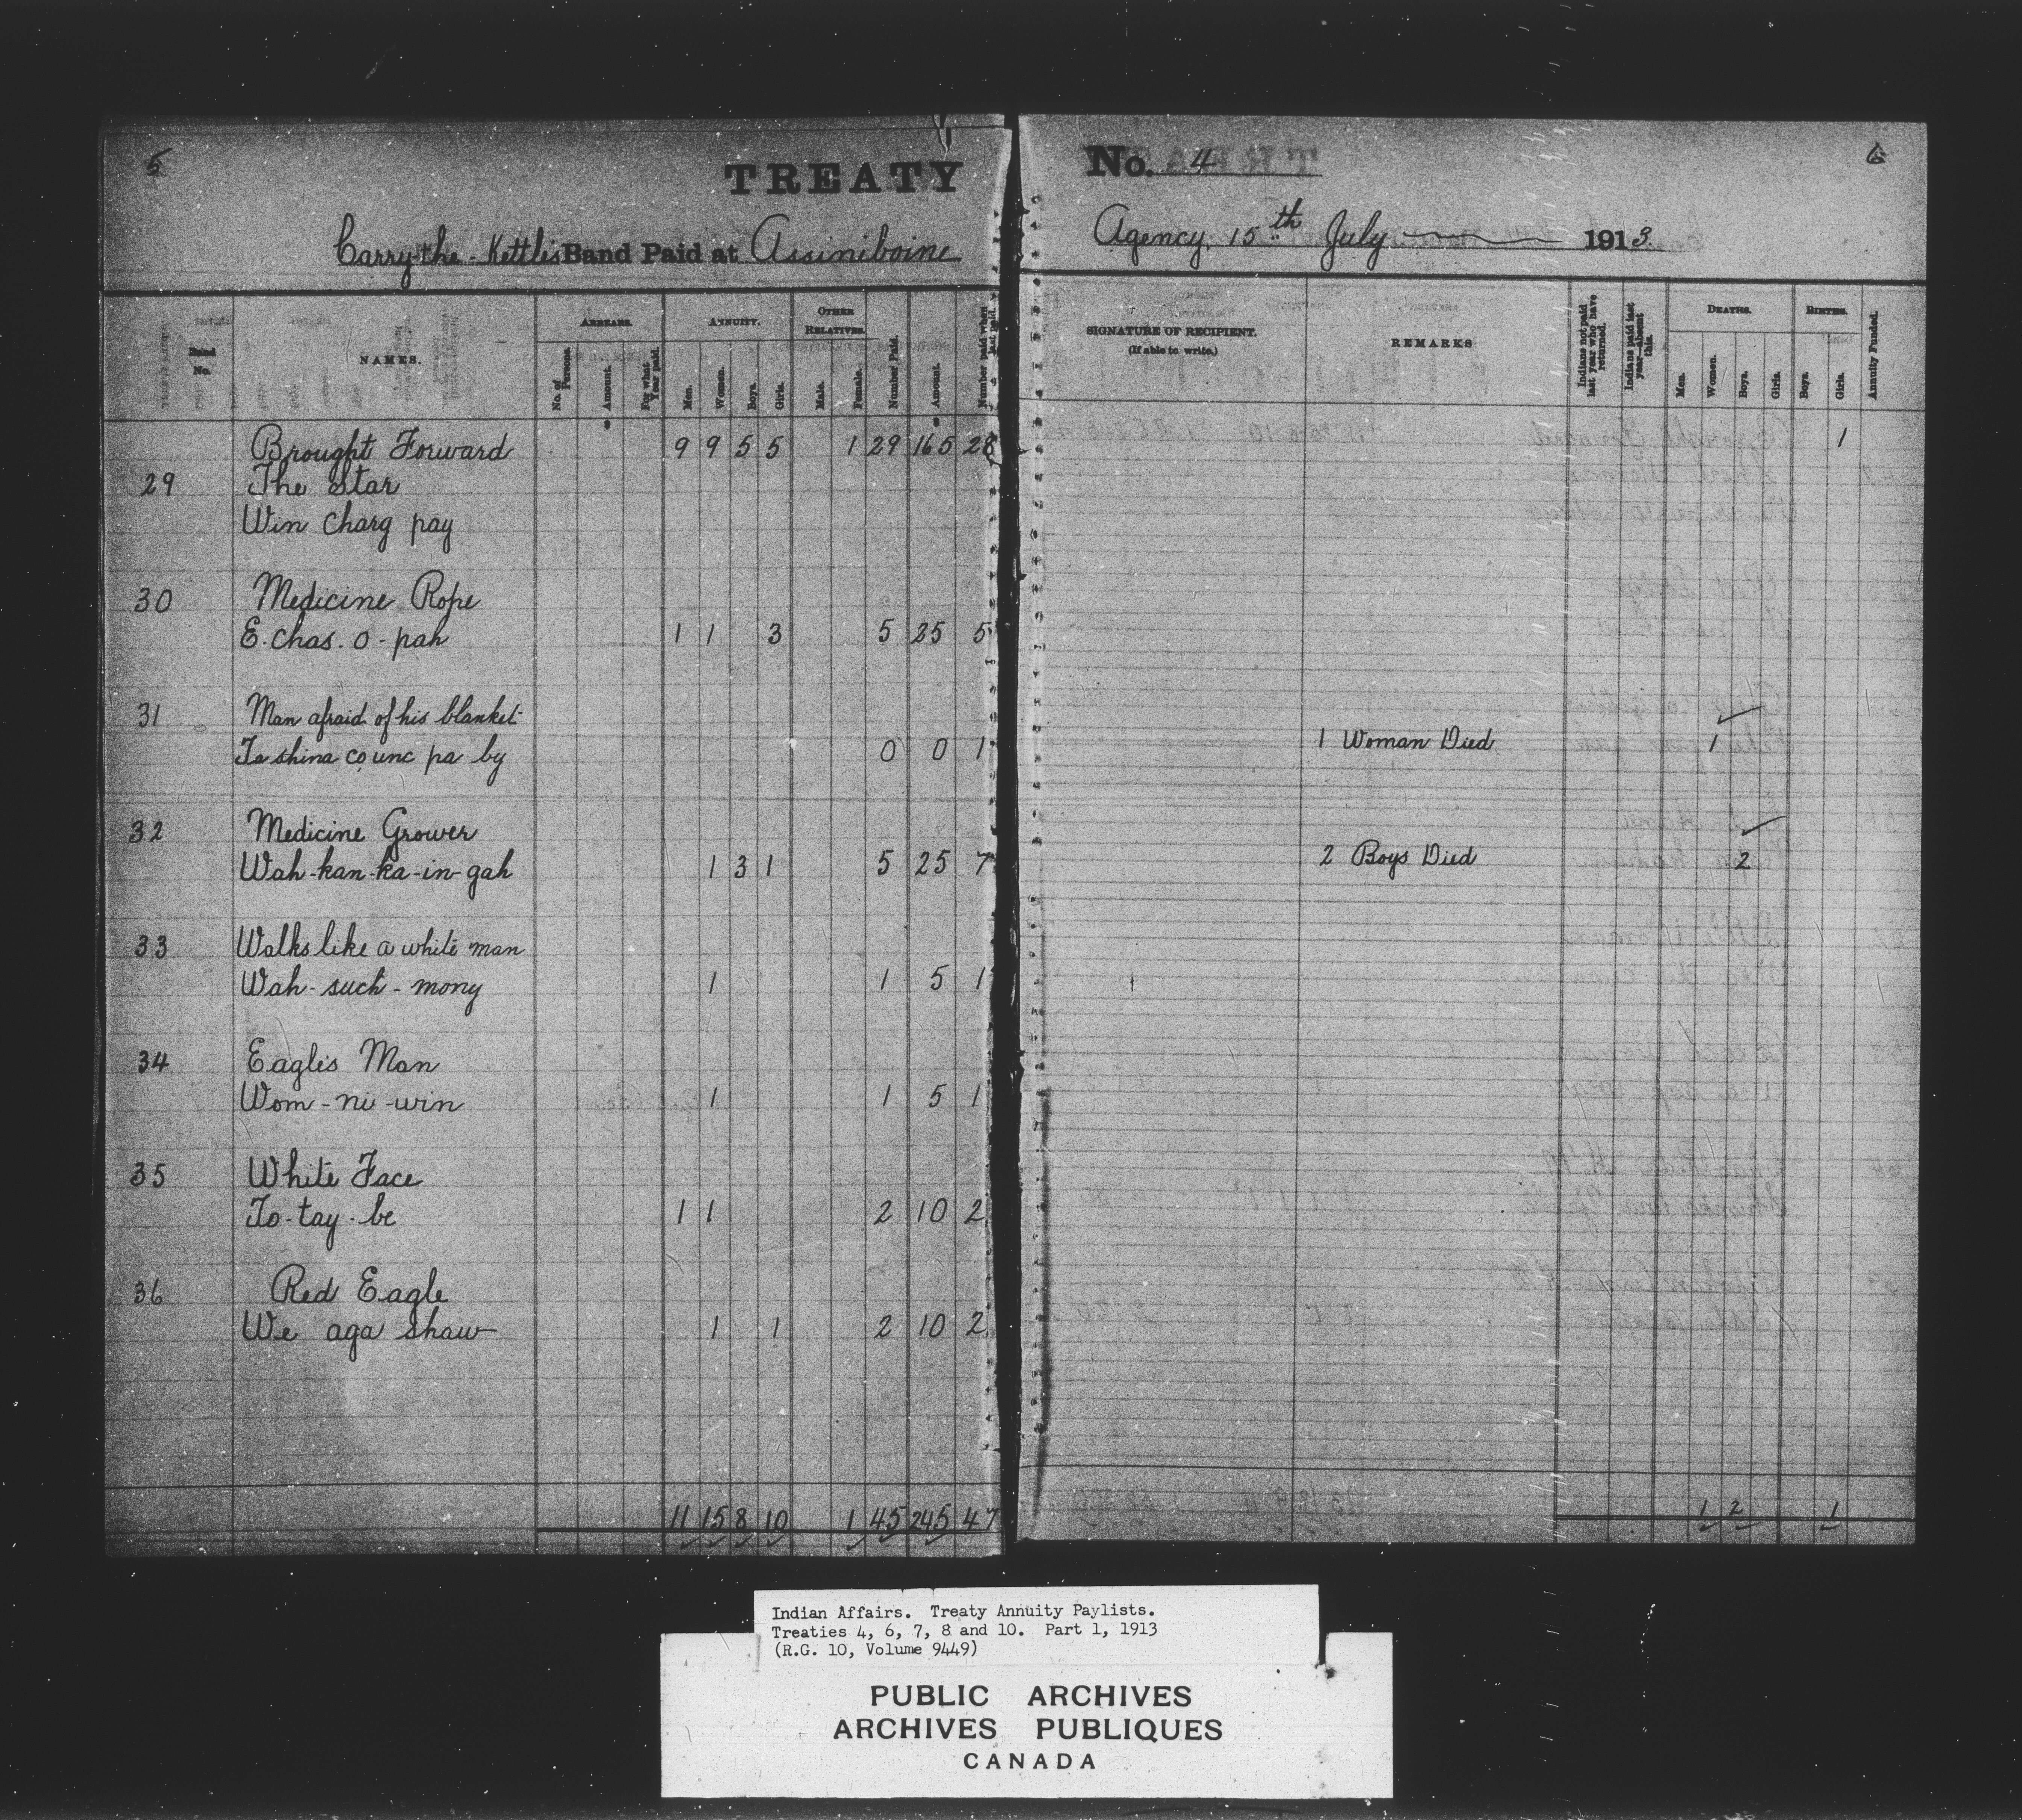 5
TREATY
No. 4
6
Carry-the-Kettle's Band Paid at Assiniboine
Agency, 15th July 1913
Band No.
NAMES.
ARREARS.
No. of Persons.
Amount.
For what Year paid.
ANNUITY.
Men.
Women.
Boys.
Girls.
OTHER RELATIVES.
Male.
Female.
Number Paid.
Amount.
Number paid when last paid.
SIGNATURE OF RECIPIENT.
(If able to write.)
REMARKS
Indians not paid last year who have returned.
Indians paid last year—absent this.
DEATHS.
Men.
Women.
Boys.
Girls.
BIRTHS.
Boys.
Girls.
Annuity Funded.
Brought Forward 9 9 5 5 1 29 165 28 1
29 The Star
Win charg pay
30 Medicine Rope
E. chas. o - pah 1 1 3 5 25 5
31 Man afraid of his blanket
Ta shina co unc pa by 0 0 1 1 Woman Died 1
32 Medicine Grower
Wah-kan-ka-in-gah 1 3 1 5 25 7 2 Boys Died 2
33 Walks like a white man
Wah-such-mony 1 1 5 1
34 Eagle's Man
Wom-ni-win 1 1 5 1
35 White Face
To-tay-be 1 1 2 10 2
36 Red Eagle
We aga shaw 1 1 2 10 2
11 15 8 10 1 45 245 47 1 2 1
Indian Affairs. Treaty Annuity Paylists.
Treaties 4, 6, 7, 8 and 10. Part 1, 1913
(R.G. 10, Volume 9449)
PUBLIC ARCHIVES
ARCHIVES PUBLIQUES
CANADA